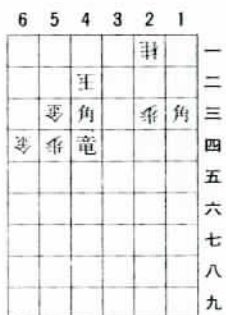 6 5 4 3 2 1
桂 一
玉 二
金 角 歩 角 三
金 歩 竜 四
五
六
七
八
九